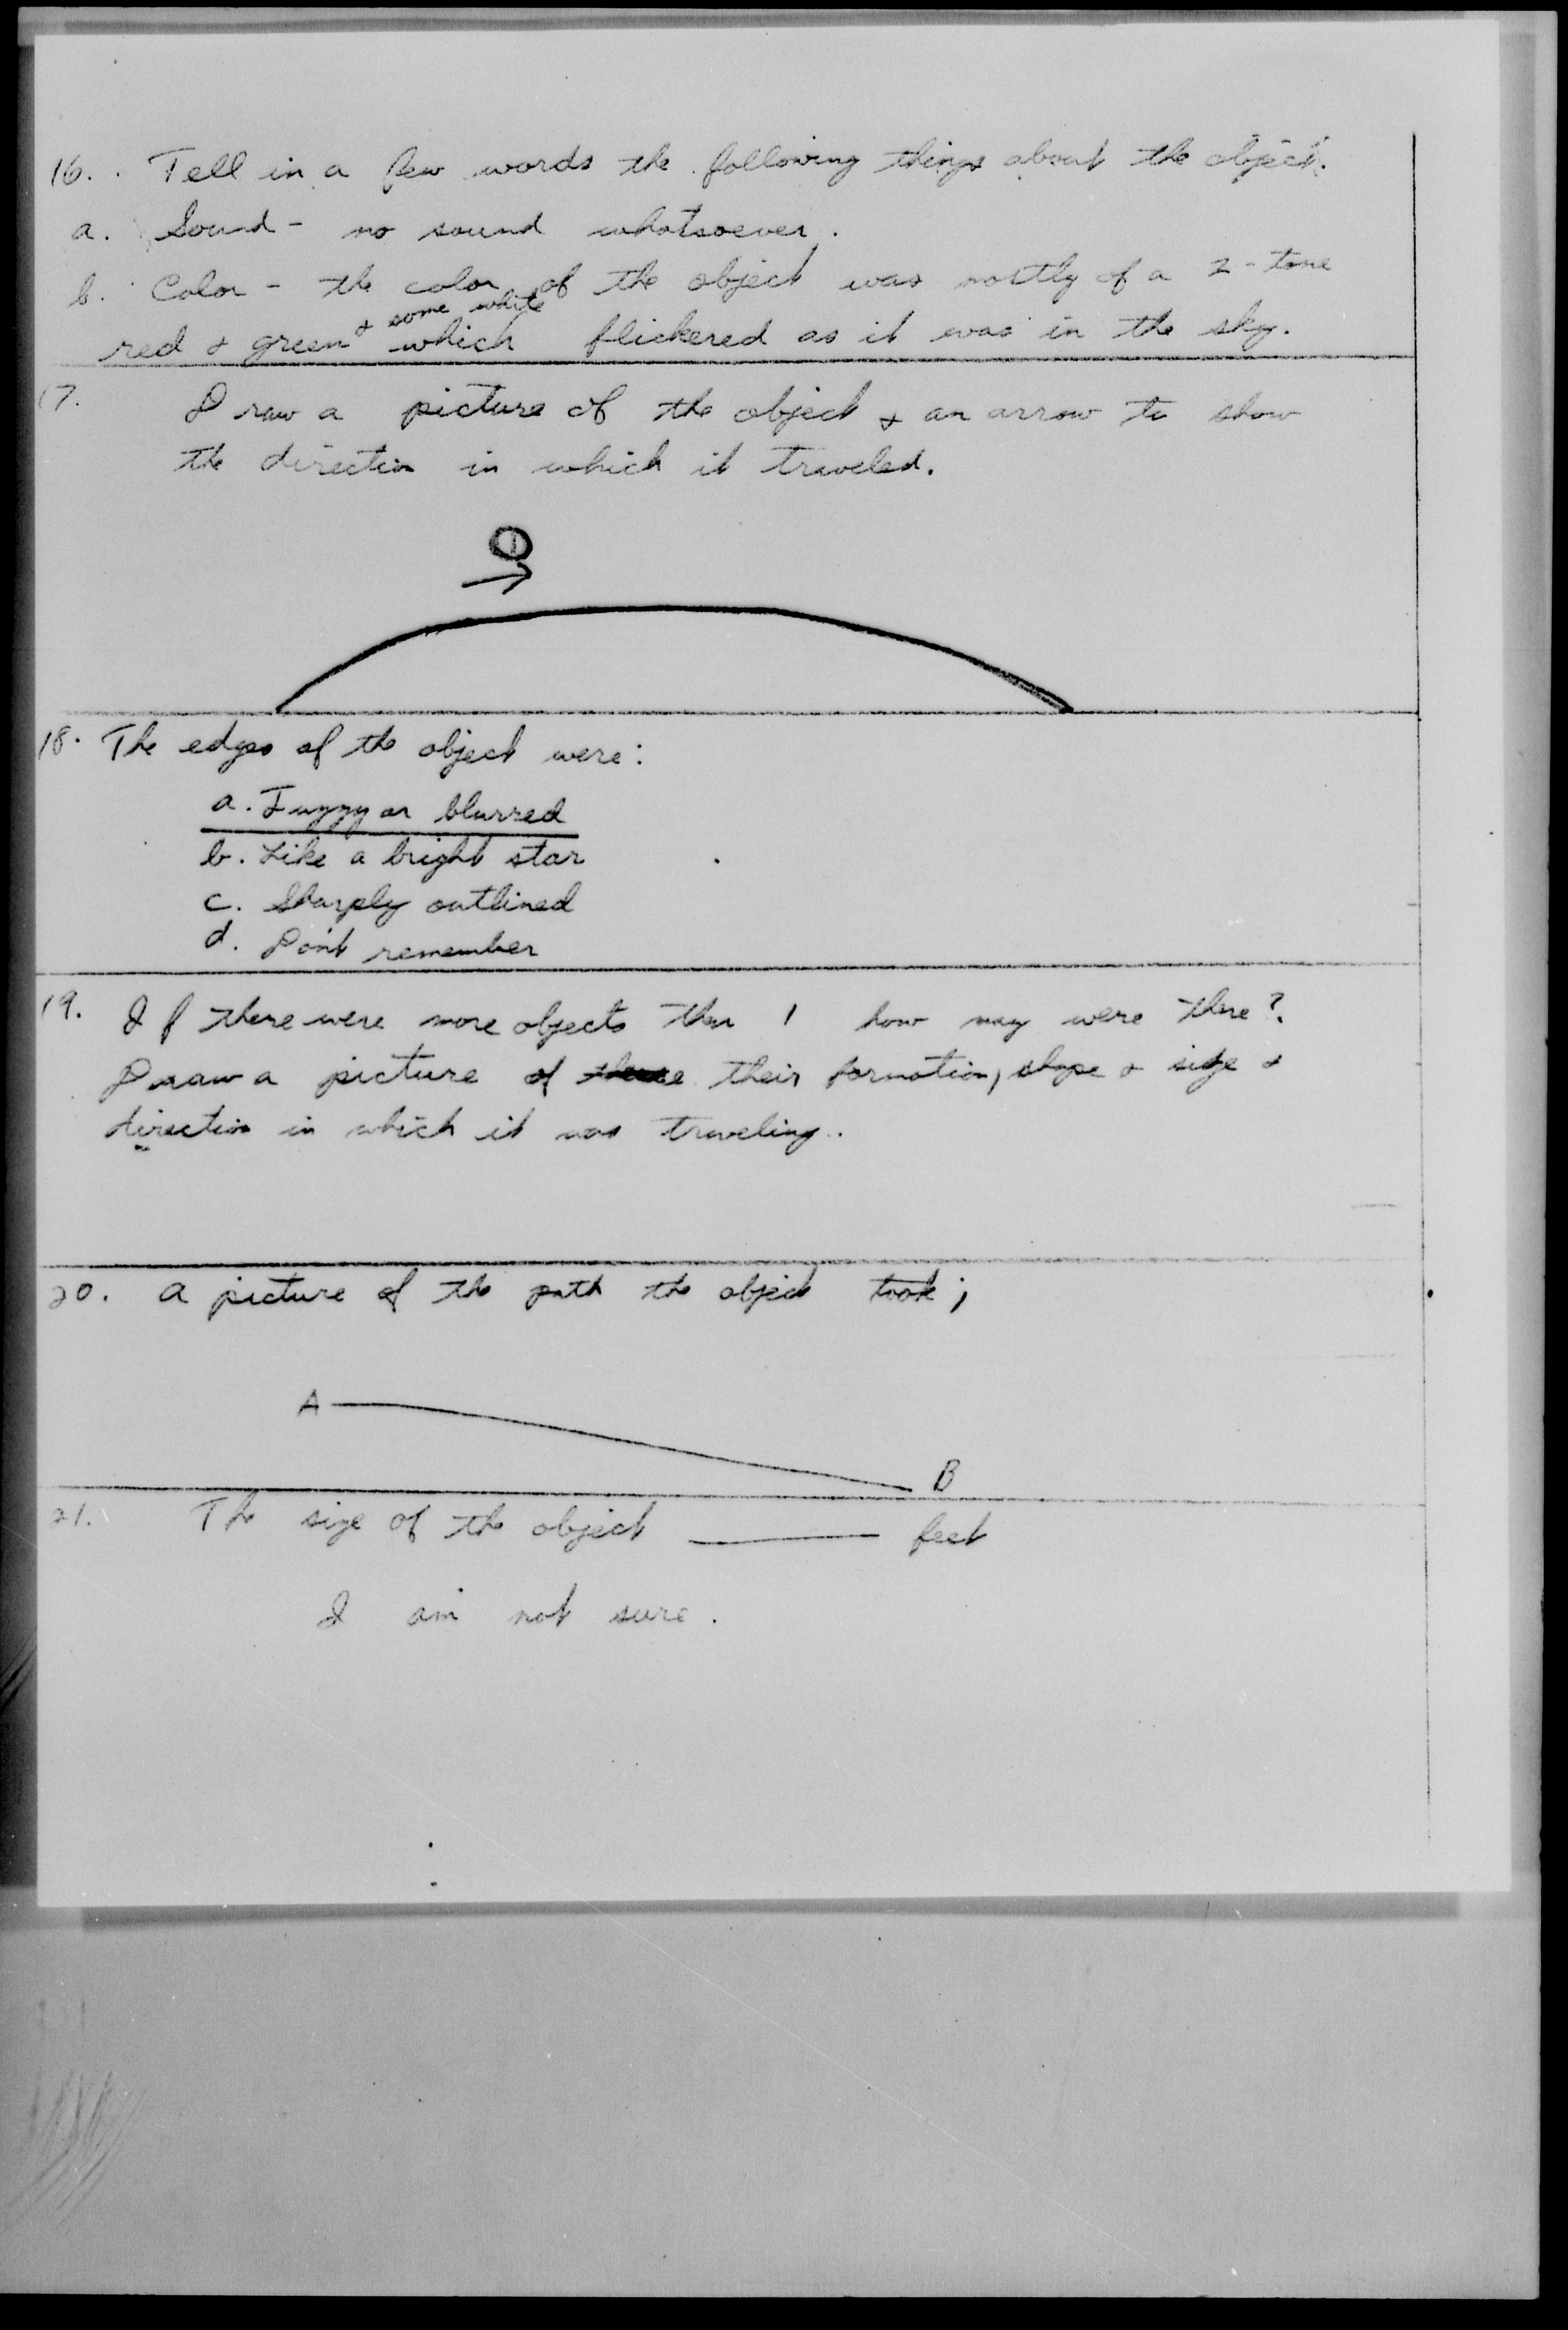 16. Tell in a few words the following things about the object.
a. Sound - no sound whatsoever.
b. Color - the color of the object was mostly of a 2-tone
& some white
red & green which flickered as it was in the sky.
17. Draw a picture of the object & an arrow to show
the direction in which it traveled.
18. The edges of the object were:
a. Fuzzy or blurred
b. Like a bright star
c. Sharply outlined
d. Don't remember
19. If there were more objects than 1 how may were there?
Draw a picture of their formation, shape & size &
direction in which it was traveling.
20. A picture of the path the object took;
A
B
21. The size of the object ______ feet
I am not sure.